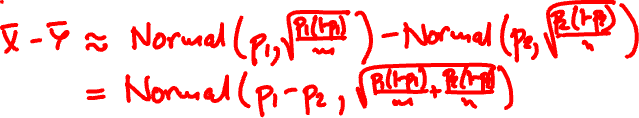 X̄ - Ȳ ≈ Normal(p₁, √(p₁(1-p₁)/m)) - Normal(p₂, √(p₂(1-p₂)/n))
= Normal(p₁-p₂, √(p₁(1-p₁)/m + p₂(1-p₂)/n))